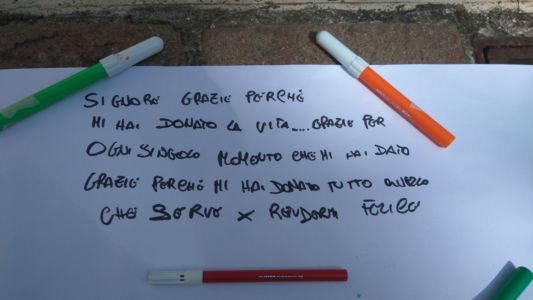 SIGNORE GRAZIE PERCHÉ
MI HAI DONATO LA VITA.... GRAZIE PER
OGNI SINGOLO MOMENTO CHE MI HAI DATO
GRAZIE PERCHÉ MI HAI DONATO TUTTO QUELLO
CHE SERVE X RENDERMI FELICE